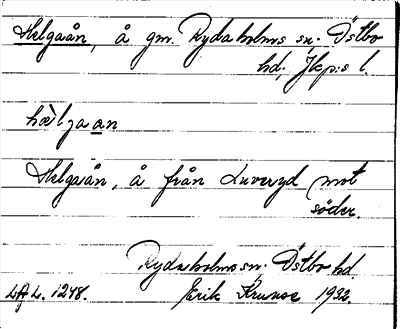 Helgaån, å gm. Rydaholms sn. Östbo
hd, Jkp:s l.
hæ̀lgaan
Helgaån, å från Luveryd mot
söder.
Rydaholms sn. Östbo hd
Lfl. 1248. Erik 1932.